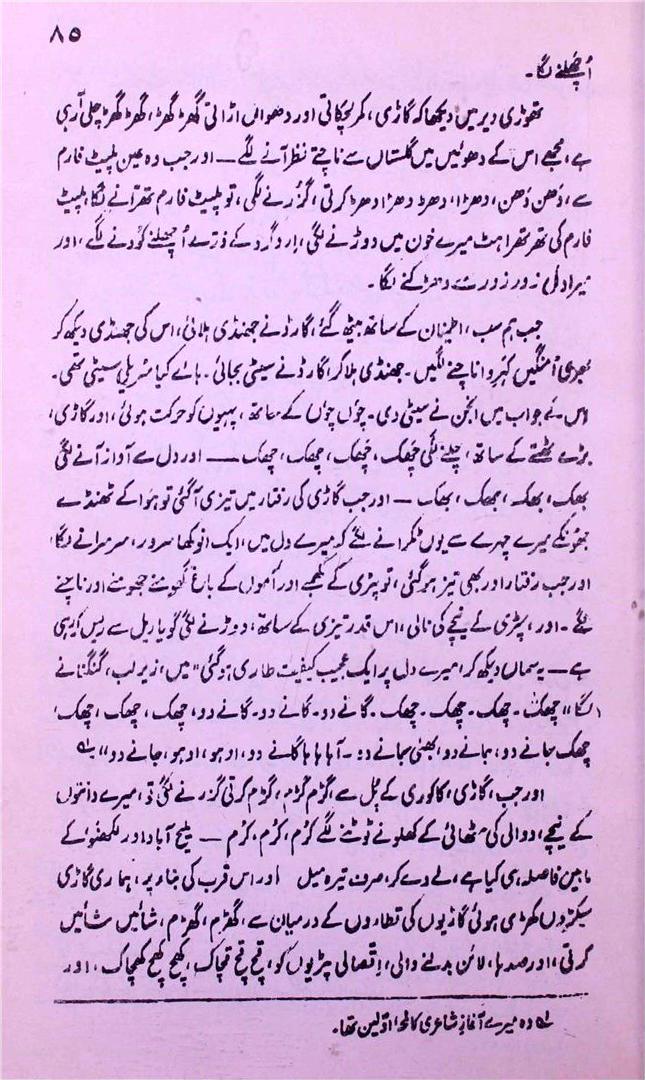 ۸۵
اُچھلنے لگا۔
تھوڑی دیر میں دیکھا کہ گاڑی، کمر لچکاتی اور دھواں اڑاتی گھڑ گھڑ، گھڑ گھڑ چلی آ رہی
ہے، مجھے اس کے دھوئیں میں گلستاں سے ناچتے نظر آنے لگے — اور جب وہ عین پلیٹ فارم
سے، دَھن دَھن، دھڑا، دھڑ دھڑا دھڑ کرتی، گزرنے لگی، تو پلیٹ فارم تھرّانے لگا، پلیٹ
فارم کی تھرتھراہٹ میرے خون میں دوڑنے لگی، اِرد گرد کے ذرّے اُچھلنے کودنے لگے، اور
میرا دل زور زور سے دھڑکنے لگا۔
جب ہم سب، اطمینان کے ساتھ بیٹھ گئے، گارڈ نے جھنڈی ہلائی، اس کی جھنڈی دیکھ کر
میری اُمنگیں کہروا ناچنے لگیں۔ جھنڈی ہلا کر، گارڈ نے سیٹی بجائی۔ ہائے کیا سُریلی سیٹی تھی۔
اس کے جواب میں انجن نے سیٹی دی۔ چوں چوں کے ساتھ، پہیوں کو حرکت ہوئی، اور گاڑی،
بڑے ٹھسّے کے ساتھ، چلنے لگی چھک، چھک، چھک، چھک — اور دل سے آواز آنے لگی
بھک، بھک، بھک، بھک — اور جب گاڑی کی رفتار میں تیزی آ گئی تو ہوا کے ٹھنڈے
جھونکے میرے چہرے سے یوں ٹکرانے لگے کہ میرے دل میں، ایک انوکھا سرور، سرسرانے لگا،
اور جب رفتار اور بھی تیز ہو گئی، تو پٹری کے کھمبے اور آموں کے باغ گھومنے جھومنے اور ناچنے
لگے۔ اور، پٹری کے نیچے کی نالی، اس قدر تیزی کے ساتھ، دوڑنے لگی گویا ریل سے ریس کر رہی
ہے — یہ سماں دیکھ کر، میرے دل پر ایک عجیب کیفیت طاری ہو گئی" میں، زیرِ لب، گنگنانے
لگا "چھک۔ چھک۔ چھک۔ چھک۔ گانے دو۔ گانے دو۔ گانے دو، چھک، چھک، چھک،
چھک جانے دو، جانے دو، بھئی جانے دو۔ آہا ہا ہا گانے دو، اوہو، اوہو، جانے دو"، لہ
اور جب، گاڑی، کاکوری کے پُل سے، گڑم گڑم، گڑم کرتی گزرنے لگی تو، میرے دانتوں
کے نیچے، دوالی کی مٹھائی کے کھلونے ٹوٹنے لگے کڑم، کڑم، کڑم — ملیح آباد اور لکھنؤ کے
مابین فاصلہ ہی کیا ہے، لے دے کر، صرف تیرہ میل اور اس قرب کی بناء پر، ہماری گاڑی
سیکڑوں کھڑی ہوئی گاڑیوں کی قطاروں کے درمیان سے، گھڑم، گھڑم، شائیں شائیں
کرتی، اور صدہا، لائن بدلنے والی، اتصالی پٹریوں کو، قچ قچ قچاک، کھچ کھچ کھچاک، اور
لہ وہ میرے آغازِ شاعری کا لمحۂ اوّلین تھا۔